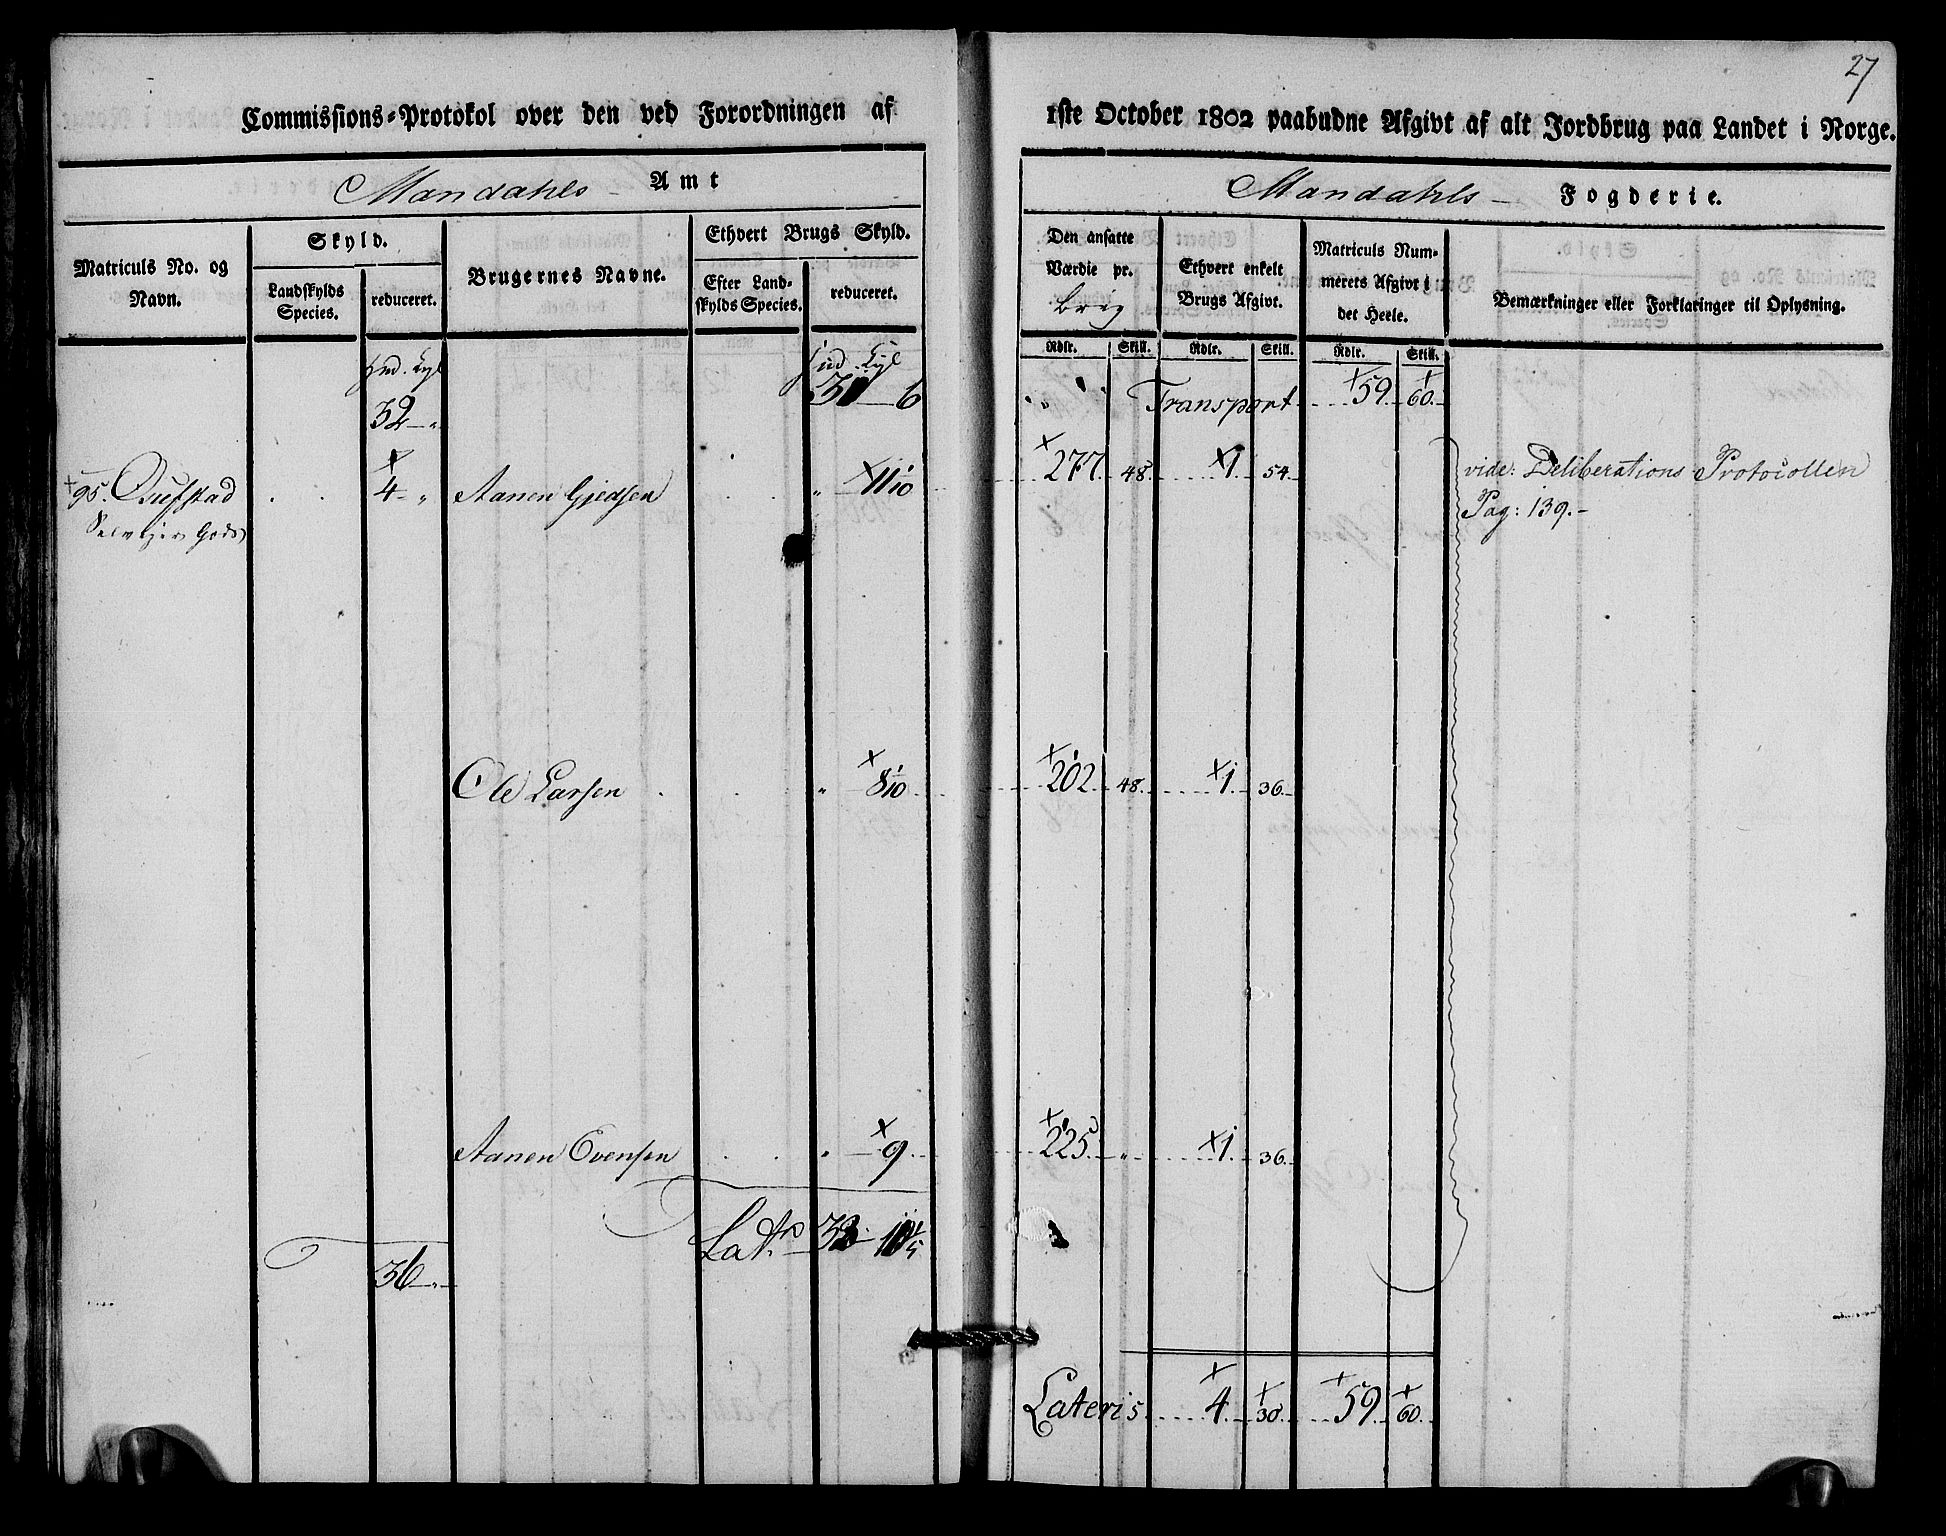 27
Commissions-Protokol over den ved Forordningen af 1ste October 1802 paabudne Afgivt af alt Jordbrug paa Landet i Norge.
Mandahls Amt
Mandahls Fogderie.
Matriculs No. og Navn.
Skyld.
Landskylds Species.
reduceret.
Brugernes Navne.
Ethvert Brugs Skyld.
Efter Landskylds Species.
reduceret.
Den ansatte Værdie pr. brig
Ethvert enkelt Brugs Afgivt.
Matriculs Nummerets Afgivt i det Heele.
Bemærkninger eller Forklaringer til Oplysning.
Rdlr. Skill. Rdlr. Skill. Rdlr. Skill.
Hud. Kyl Hud. Kyl
32 " 31 6 Transport 59. 60.
95. Qvifstad 4 " Aanen Gjedsen " 11 1/10 277. 48. 1. 54. vide: Deliberations Protocollen
Selvejer Gods Pag: 139.
Ole Larsen " 8 1/10 202. 48. 1. 36.
Aanen Evensen " 9. 225. " 1. 36.
Lat. 33 10 1/5
36 "
Lateris 4. 30. 59. 60.